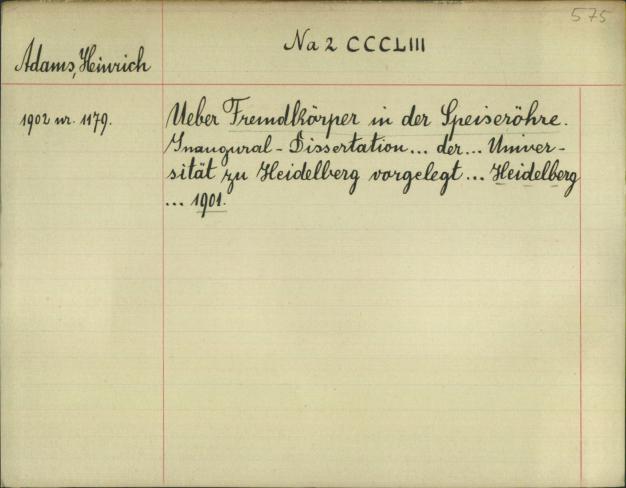 575
Na 2 CCCLIII
Adams, Heinrich
1902 nr. 1179.
Ueber Fremdkörper in der Speiseröhre.
Inaugural-Dissertation... der... Univer-
sität zu Heidelberg vorgelegt... Heidelberg
... 1901.